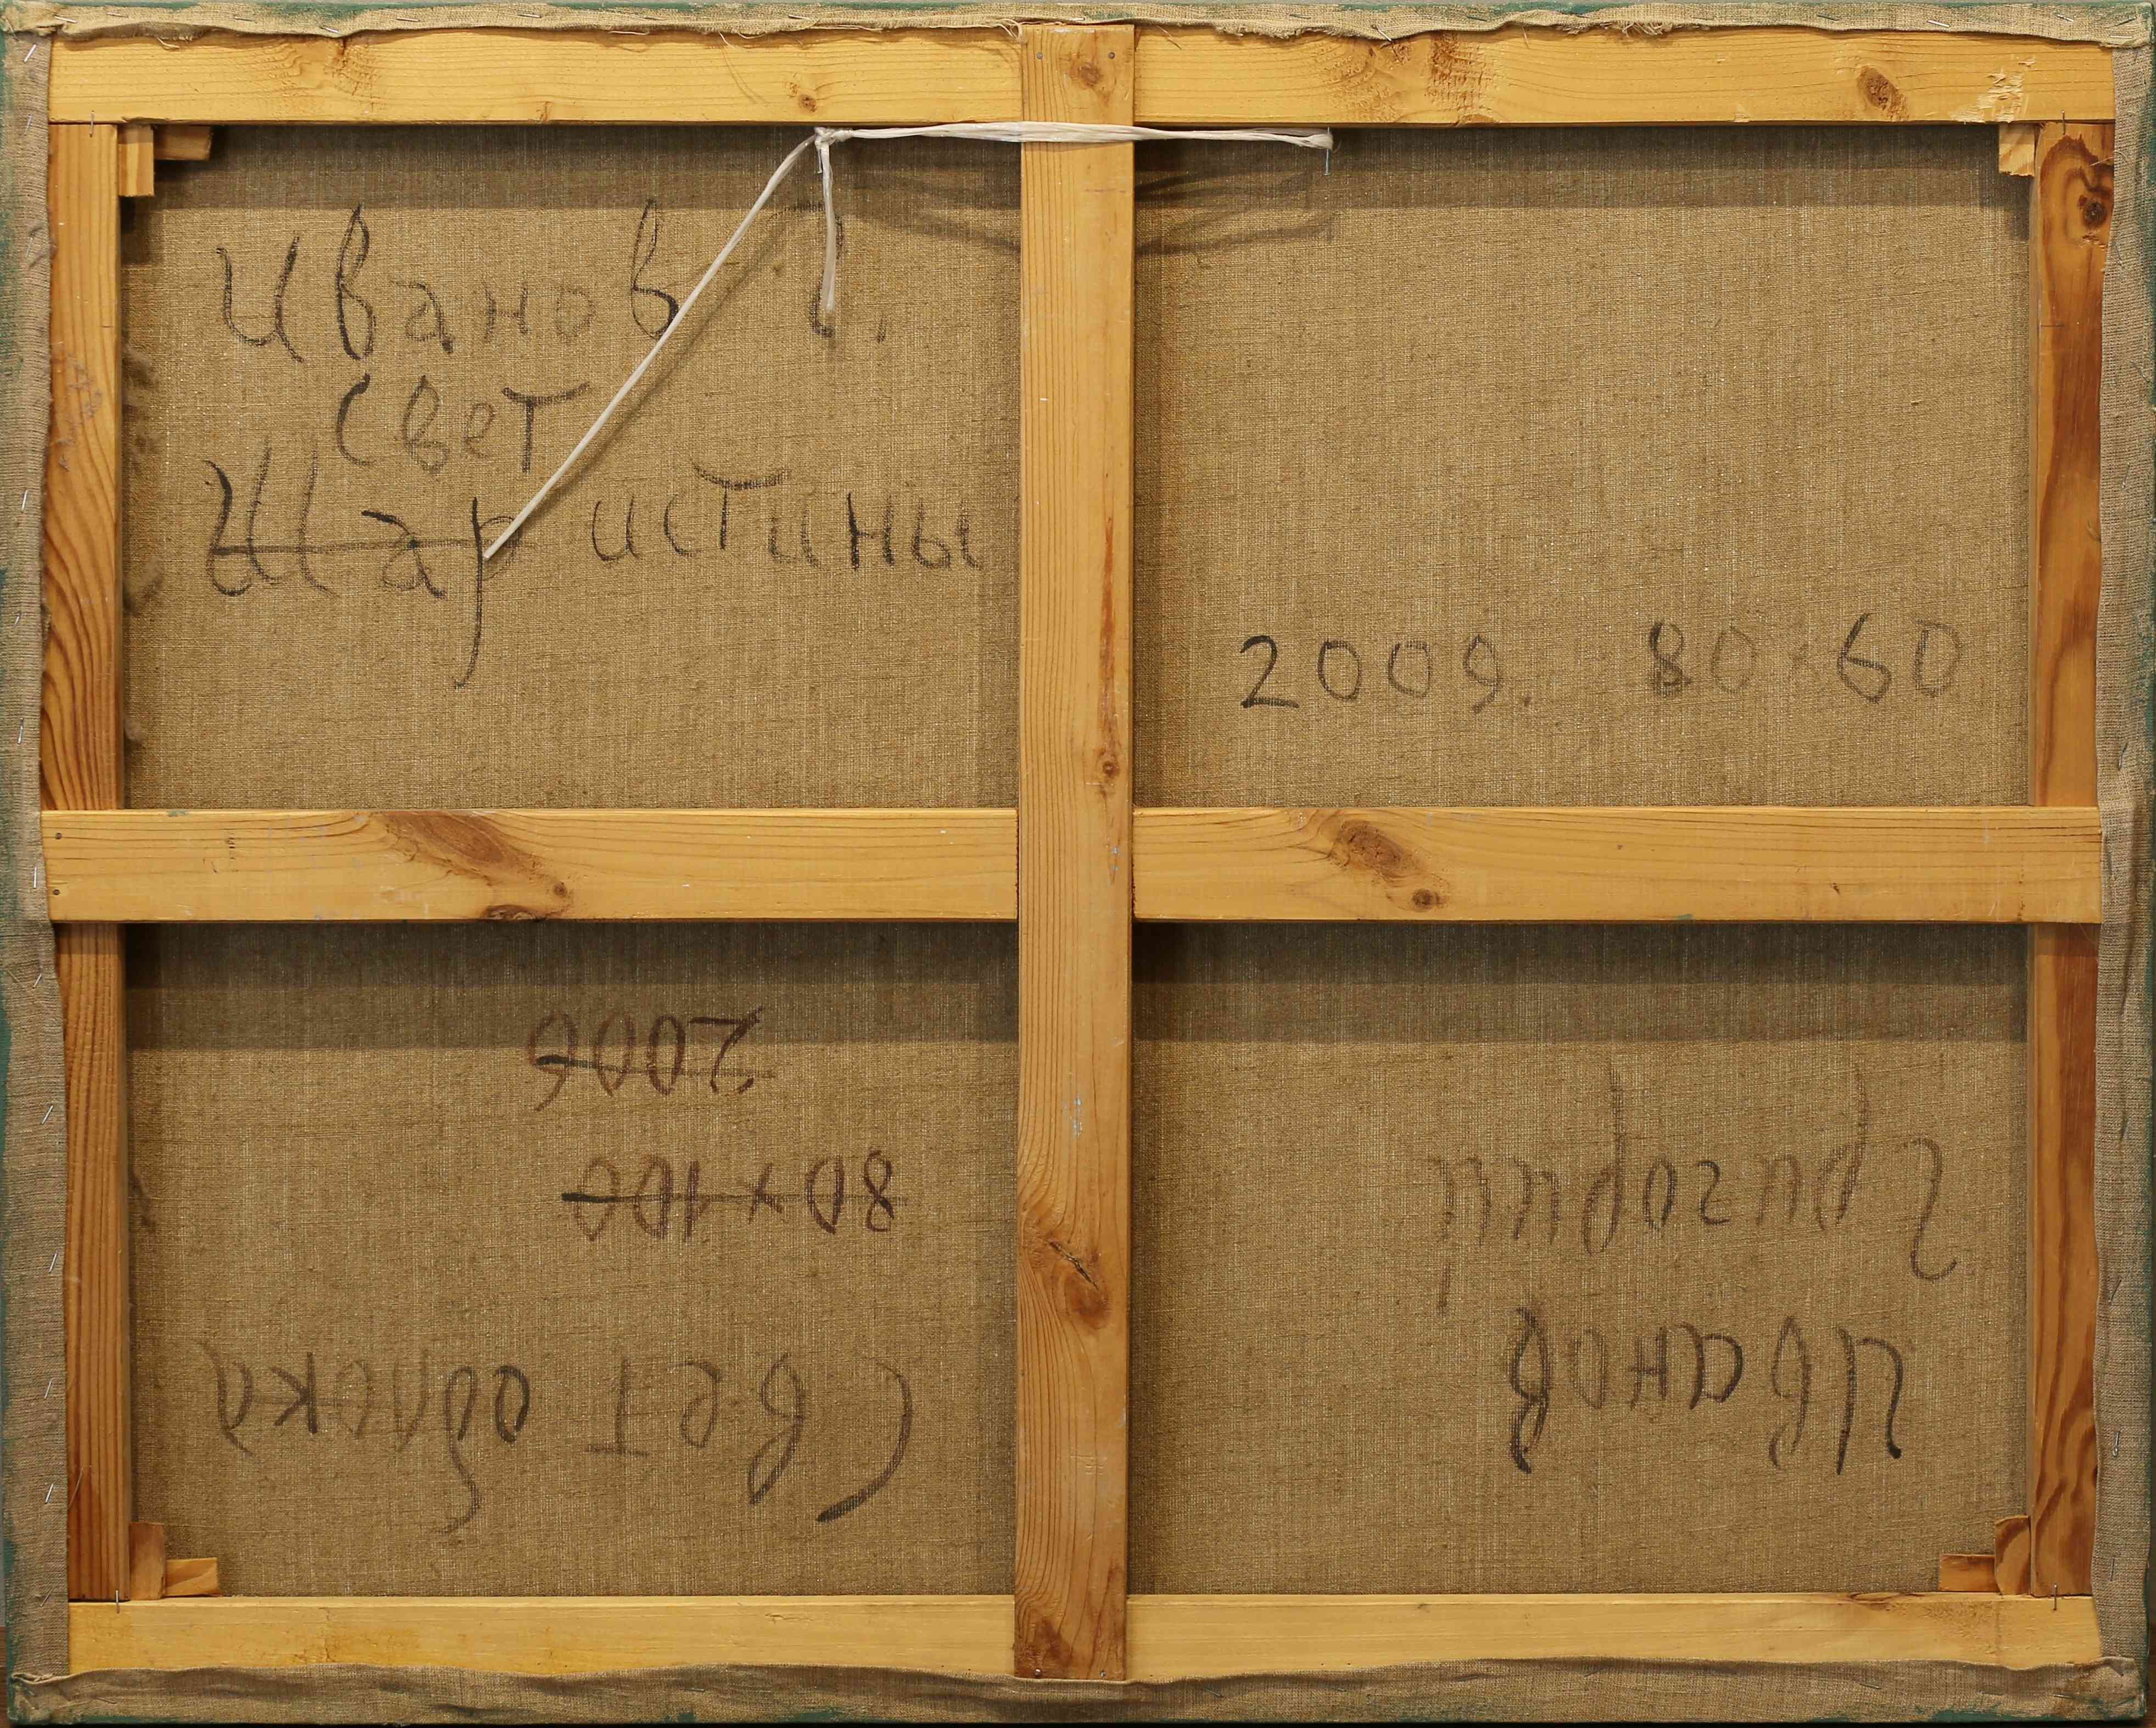 Иванов Г.
свет
Шар истины
2009. 80×60
Иванов
Григорий
Свет облака
80×100
2006